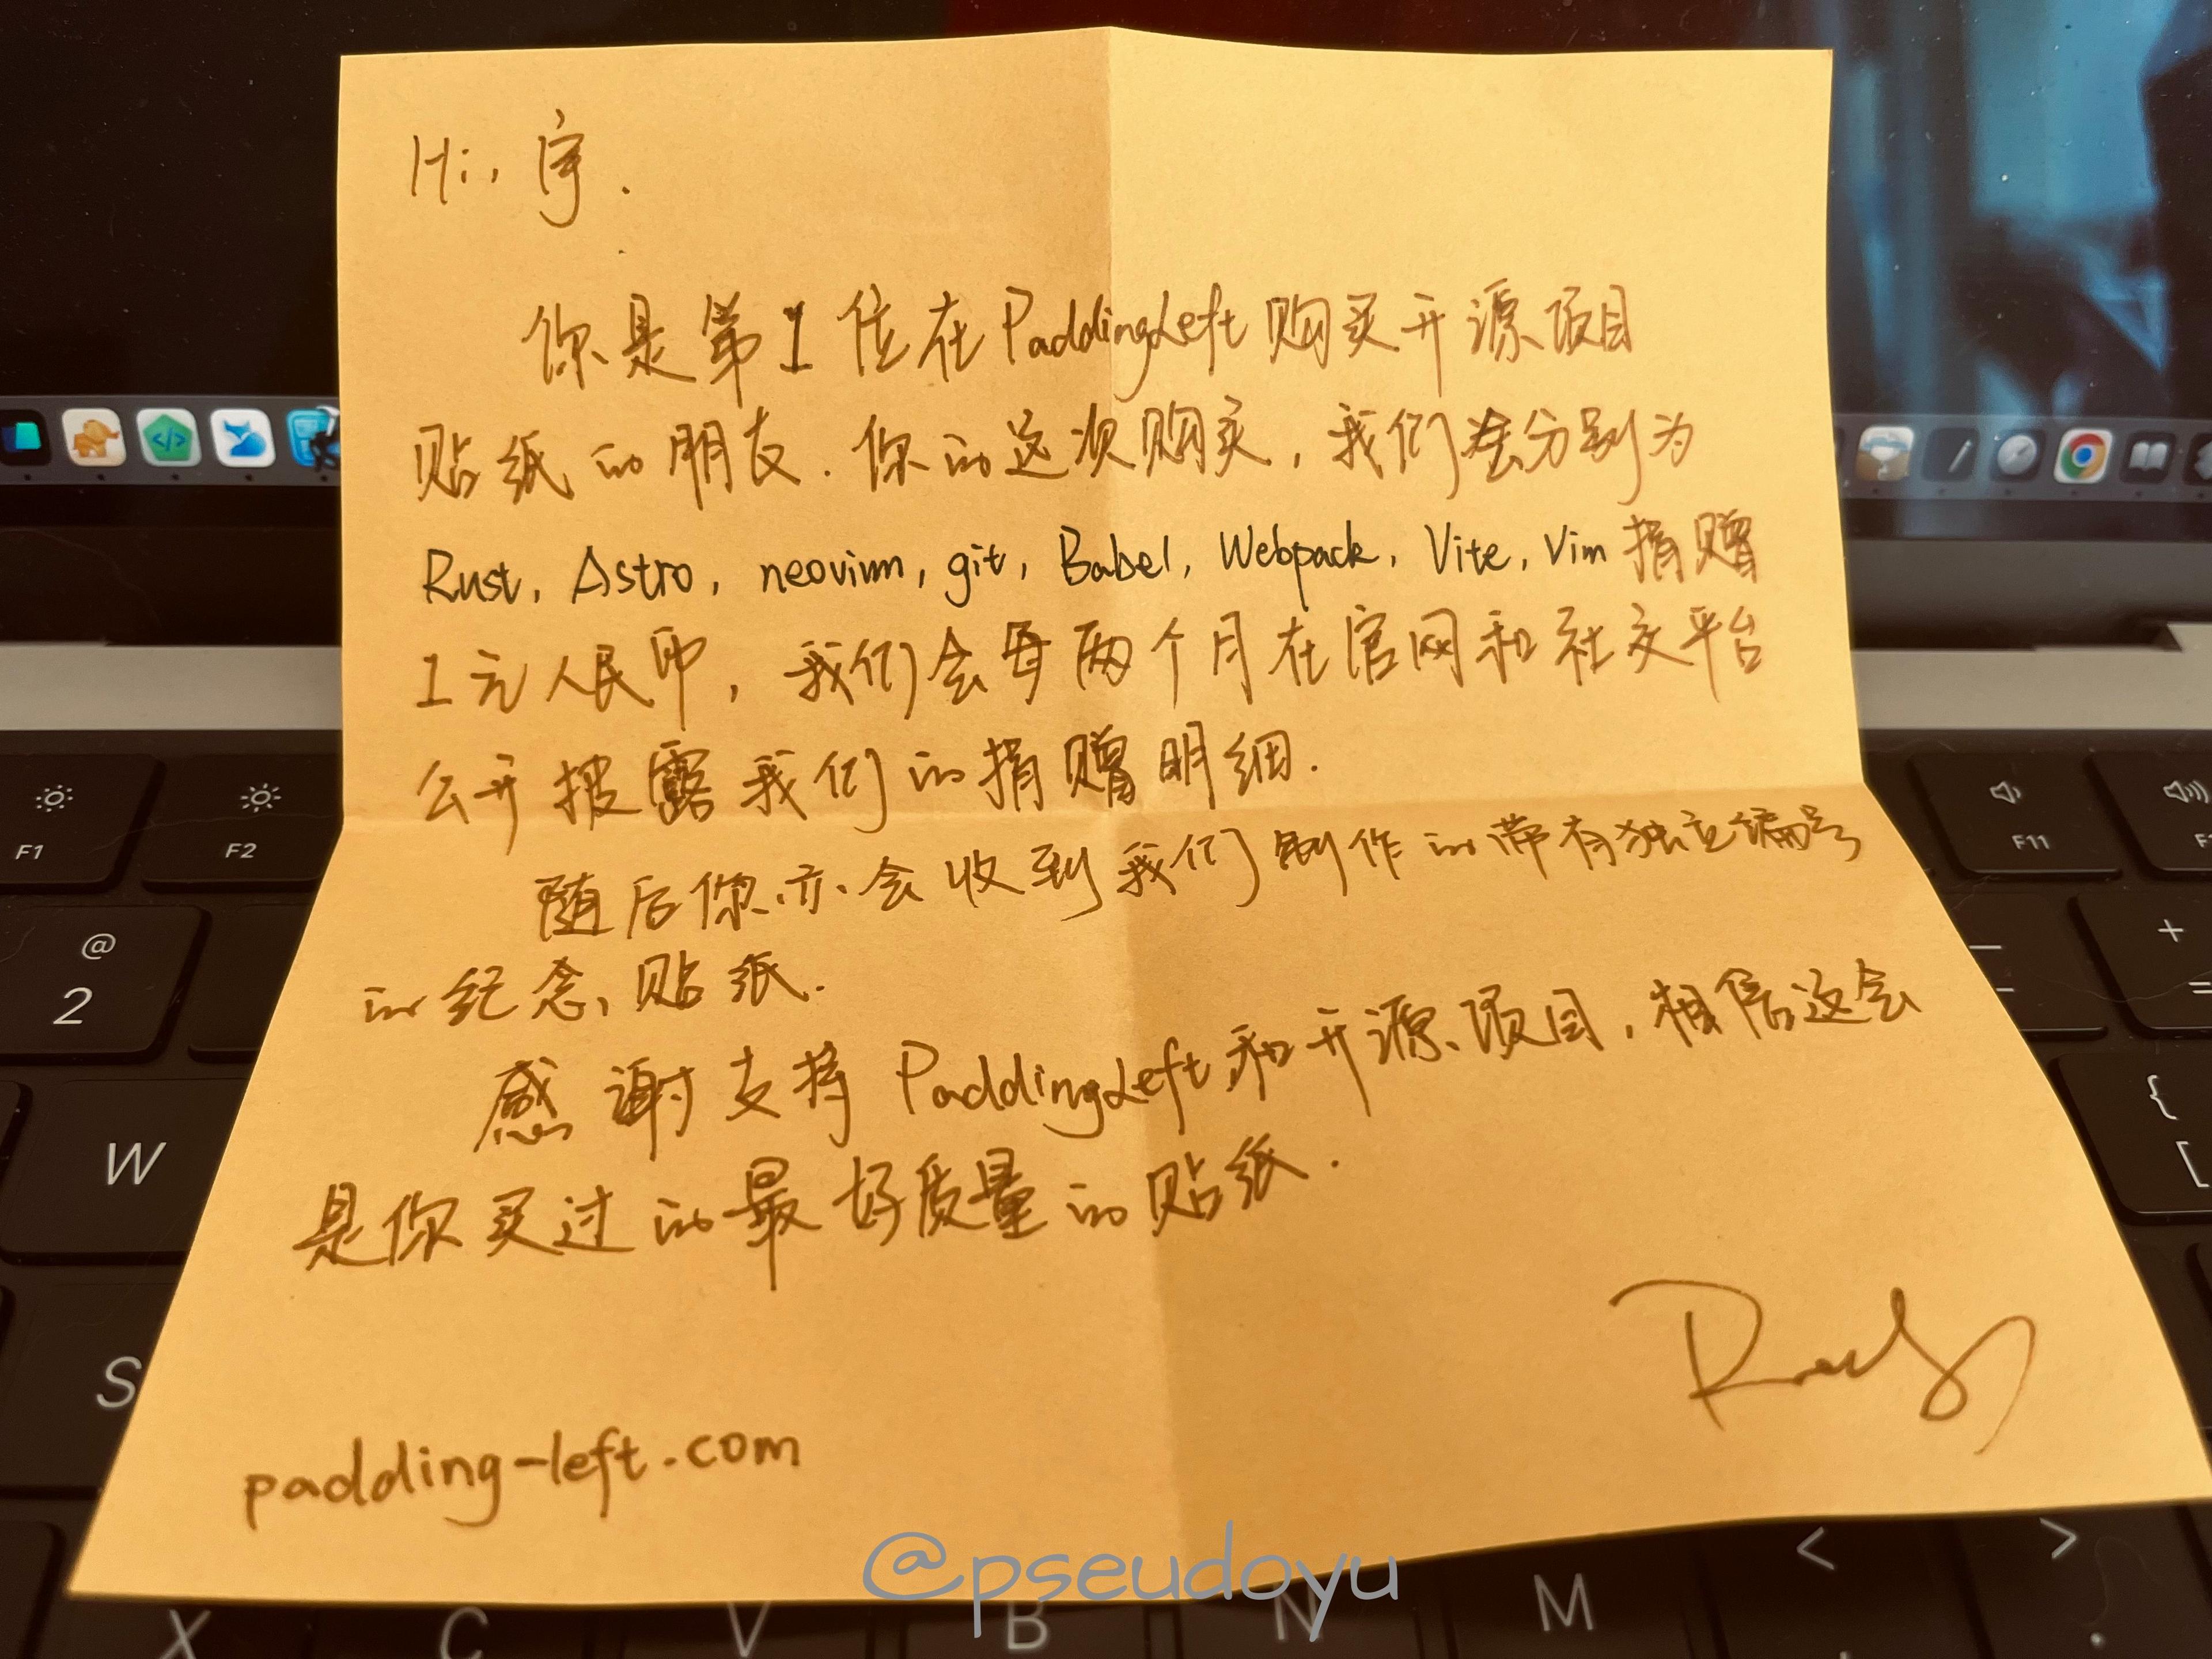 Hi, 宇.
你是第1位在PaddingLeft购买开源项目
贴纸的朋友.你的这次购买,我们会分别为
Rust, Astro, neovim, git, Babel, Webpack, Vite, Vim 捐赠
1元人民币,我们会每两个月在官网和社交平台
公开披露我们的捐赠明细.
随后你亦会收到我们制作的带有独立编号
的纪念贴纸.
感谢支持 PaddingLeft和开源项目,相信这会
是你买过的最好质量的贴纸.
padding-left.com
@pseudoyu
F1
F2
F11
@
2
W
S
X
C
V
B
N
M
<
>
+
=
{
[